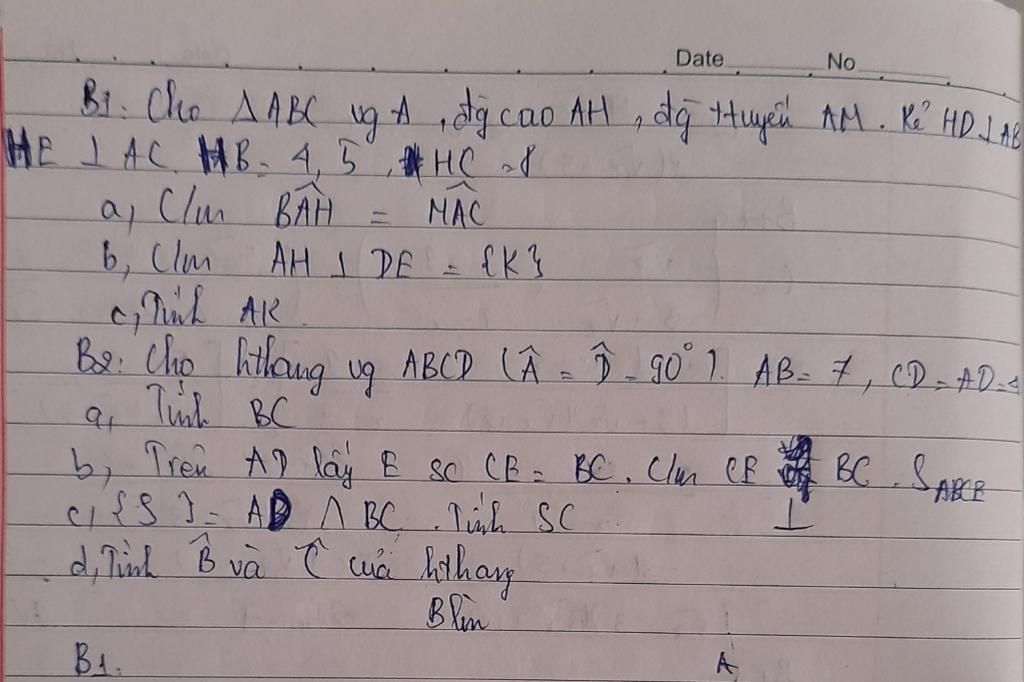 Date No
B1: Cho ΔABC vg A, đg cao AH, đg tuyến AM. Kẻ HD⊥AB
HE ⊥ AC. HB = 4,5, HC = 8
a, C/m BÂH = MÂC
b, C/m AH ⊥ DE = {K}
c, Tính AK
B2: Cho hthang vg ABCD (Â = D̂ = 90°). AB = 7, CD = AD =
a, Tính BC
b, Trên AD lấy E sc CE = BC. C/m CE ⊥ BC. S_ABCE
c, {S} = AD ∩ BC. Tính SC
d, Tính B̂ và Ĉ của hthang
B1. A